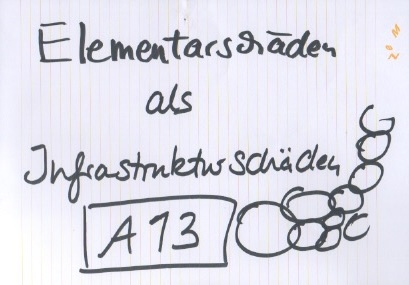 Elementarschäden
als
Infrastrukturschäden
A 13